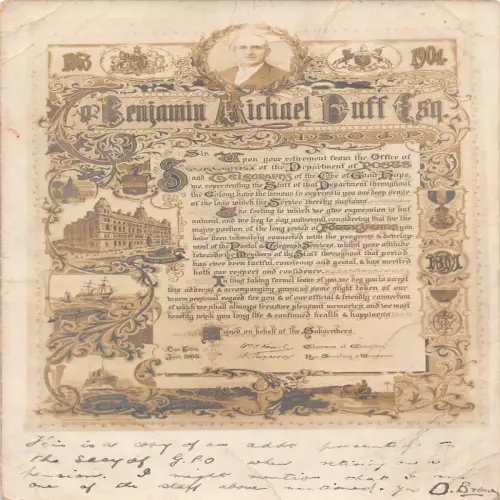 1904
To Benjamin Michael Duff Esq.
I.S.O.
Sir, Upon your retirement from the Office of
Secretary of the Department of Posts
and Telegraphs of the Cape of Good Hope,
we representing the Staff of this Department throughout
the Colony have the honour to express to you our deep sense
of the loss which the Service thereby sustains.
The feeling to which we give expression is but
natural, and we beg to say universal, considering that for the
major portion of the long period of Forty Years you
have been intimately connected with the progress & develop-
ment of the Postal & Telegraph Services, whilst your attitude
towards the Members of the Staff throughout that period
has ever been tactful, courteous and genial, & has merited
both our respect and confidence.
In thus taking formal leave of you, we beg you to accept
this address & accompanying purse, as some slight token of our
warm personal regard for you & of our official & friendly connection
of which we shall always treasure pleasant memories, and we most
heartily wish you long life & continued health & happiness.
Signed on behalf of the Subscribers.
Cape Town,
June 1905
Chairman of Committee
Hon. Secretary & Treasurer
This is a copy of an address presented to
the Secy of G.P.O when retiring on a
pension. I might mention that I am
one of the staff above mentioned. Yrs D. Brown